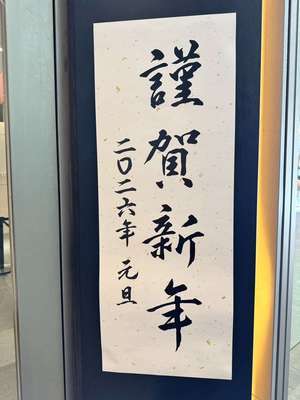 謹賀新年
二〇二六年 元旦